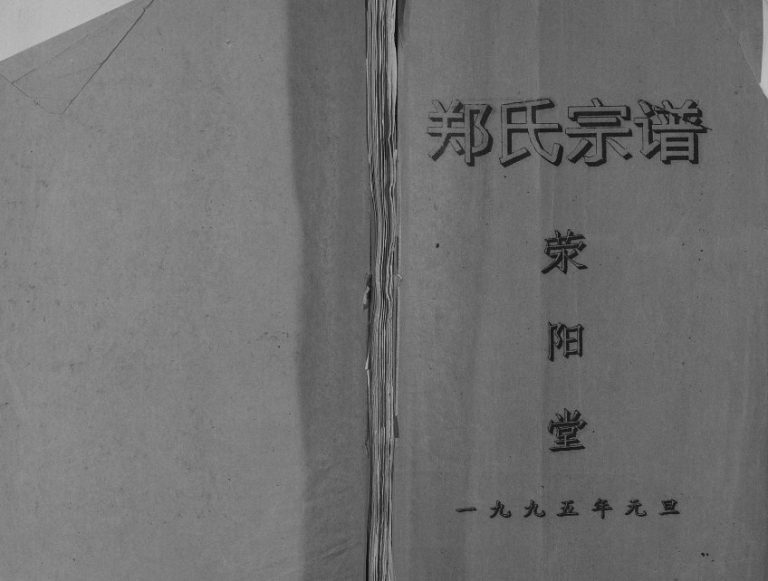 郑氏宗谱
荥
阳
堂
一九九五年元旦